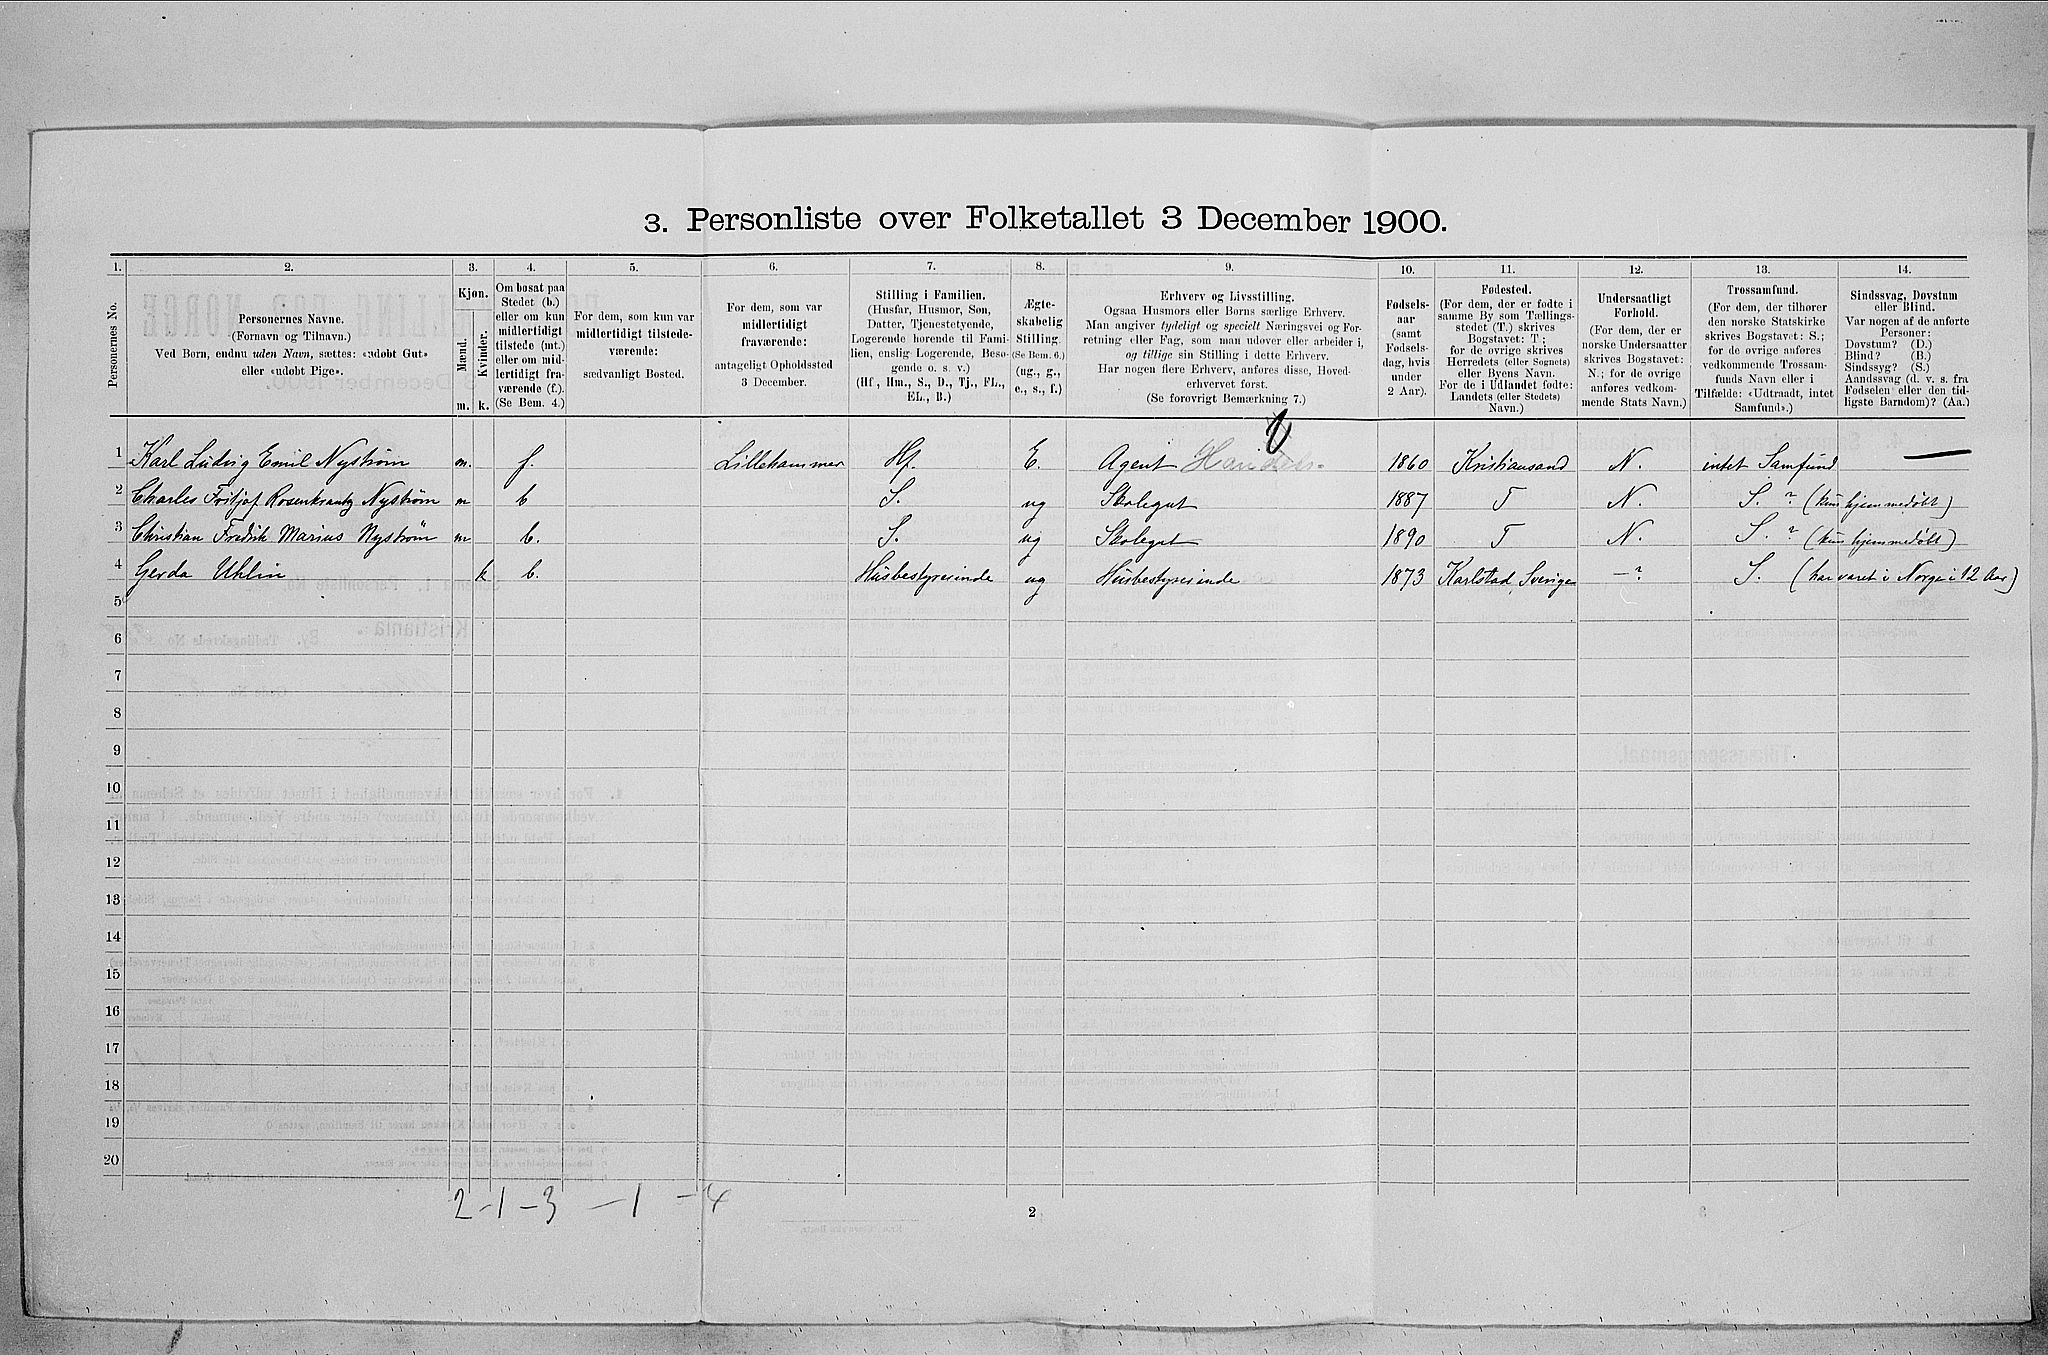 3. Personliste over Folketallet 3 December 1900.
1. 2. 3. 4. 5. 6. 7. 8. 9. 10. 11. 12. 13. 14.
Personernes No.
Personernes Navne.
(Fornavn og Tilnavn.)
Ved Børn, endnu uden Navn, sættes: «udøbt Gut»
eller «udøbt Pige».
Kjøn.
Mænd.
Kvinder.
m. k.
Om bosat paa
Stedet (b.)
eller om kun
midlertidigt
tilstede (mt.)
eller om mid-
lertidigt fra-
værende (f.).
(Se Bem. 4.)
For dem, som kun var
midlertidigt tilstede-
værende:
sædvanligt Bosted.
For dem, som var
midlertidigt
fraværende:
antageligt Opholdssted
3 December.
Stilling i Familien.
(Husfar, Husmor, Søn,
Datter, Tjenestetyende,
Logerende hørende til Fami-
lien, enslig Logerende, Besø-
gende o. s. v.)
(Hf., Hm., S., D., Tj., FL.,
EL., B.)
Ægte-
skabelig
Stilling.
(Se Bem. 6.)
(ug., g.,
e., s., f.)
Erhverv og Livsstilling.
Ogsaa Husmors eller Børns særlige Erhverv.
Man angiver tydeligt og specielt Næringsvei og For-
retning eller Fag, som man udøver eller arbeider i,
og tillige sin Stilling i dette Erhverv.
Har nogen flere Erhverv, anføres disse, Hoved-
erhvervet først.
(Se forøvrigt Bemærkning 7.)
Fødsels-
aar
(samt
Fødsels-
dag, hvis
under
2 Aar).
Fødested.
(For dem, der er fødte i
samme By som Tællings-
stedet (T.) skrives
Bogstavet: T;
for de øvrige skrives
Herredets (eller Sognets)
eller Byens Navn.
For de i Udlandet fødte:
Landets (eller Stedets)
Navn.)
Undersaatligt
Forhold.
(For dem, der er
norske Undersaatter
skrives Bogstavet:
N.; for de øvrige
anføres vedkom-
mende Stats Navn.)
Trossamfund.
(For dem, der tilhører
den norske Statskirke
skrives Bogstavet: S.;
for de øvrige anføres
vedkommende Trossam-
funds Navn eller i
Tilfælde: «Udtraadt, intet
Samfund».)
Sindssvag, Døvstum
eller Blind.
Var nogen af de anførte
Personer:
Døvstum? (D.)
Blind? (B.)
Sindssyg? (S.)
Aandssvag (d. v. s. fra
Fødselen eller den tid-
ligste Barndom)? (Aa.)
1 Karl Ludvig Emil Nystrøm m. f. Lillehammer Hf. E. Agent Handels- 1860 Kristiansand N. intet Samfund —
2 Charles Fritjof Rosenkrantz Nystrøm m b S. ug Skolegut 1887 T N. S. ? (kun hjemmedøbt)
3 Christian Fredrik Marius Nystrøm m b. S. ug Skolegut 1890 T N. S. ? (kun hjemmedøbt)
4 Gerda Uhlin k b. Husbestyrerinde ug Husbestyrerinde 1873 Karlstad, Sverige —? S. (har været i Norge i 12 Aar)
5
6
7
8
9
10
11
12
13
14
15
16
17
18
19
20
2-1-3 -1 -4
2